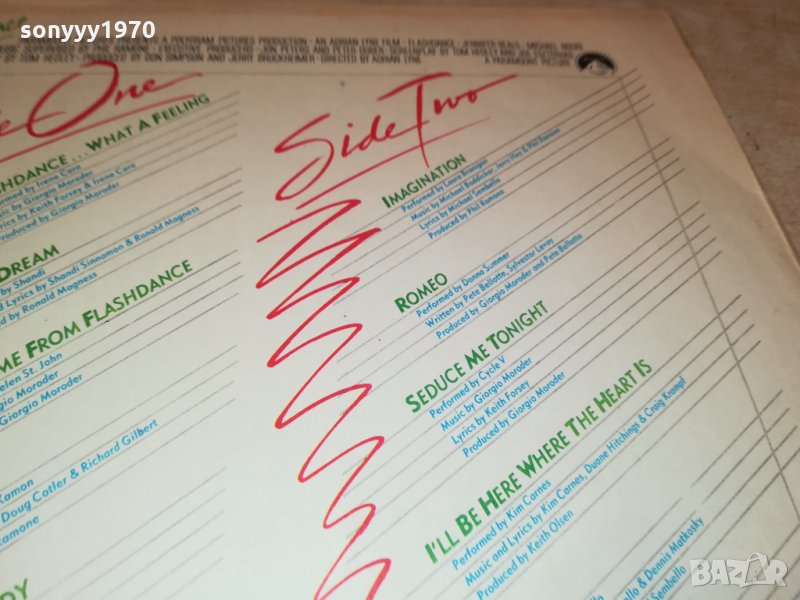 sonyyy1970
A POLYGRAM PICTURES PRODUCTION · AN ADRIAN LYNE FILM · FLASHDANCE · JENNIFER BEALS · MICHAEL NOURI
BY PHIL RAMONE · EXECUTIVE PRODUCERS · JON PETERS AND PETER GUBER · SCREENPLAY BY TOM HEDLEY AND JOE ESZTERHAS
BY TOM HEDLEY · PRODUCED BY DON SIMPSON AND JERRY BRUCKHEIMER · DIRECTED BY ADRIAN LYNE
A PARAMOUNT PICTURE
One
HDANCE . . . WHAT A FEELING
by Irene Cara
by Giorgio Moroder
by Keith Forsey & Irene Cara
by Giorgio Moroder
DREAM
by Shandi
Lyrics by Shandi Sinnamon & Ronald Magness
by Ronald Magness
ME FROM FLASHDANCE
elen St. John
gio Moroder
Giorgio Moroder
Ramon
Doug Cotler & Richard Gilbert
amone
DY
Side Two
IMAGINATION
Performed by Laura Branigan
Music by Michael Boddicker, Jerry Hey & Phil Ramone
Lyrics by Michael Sembello
Produced by Phil Ramone
ROMEO
Performed by Donna Summer
Written by Pete Bellotte, Sylvester Levay
Produced by Giorgio Moroder and Pete Bellotte
SEDUCE ME TONIGHT
Performed by Cycle V
Music by Giorgio Moroder
Lyrics by Keith Forsey
Produced by Giorgio Moroder
I'LL BE HERE WHERE THE HEART IS
Performed by Kim Carnes
Music and Lyrics by Kim Carnes, Duane Hitchings & Craig Krampf
Produced by Keith Olsen
llo & Dennis Matkosky
Sembello
BAZAR